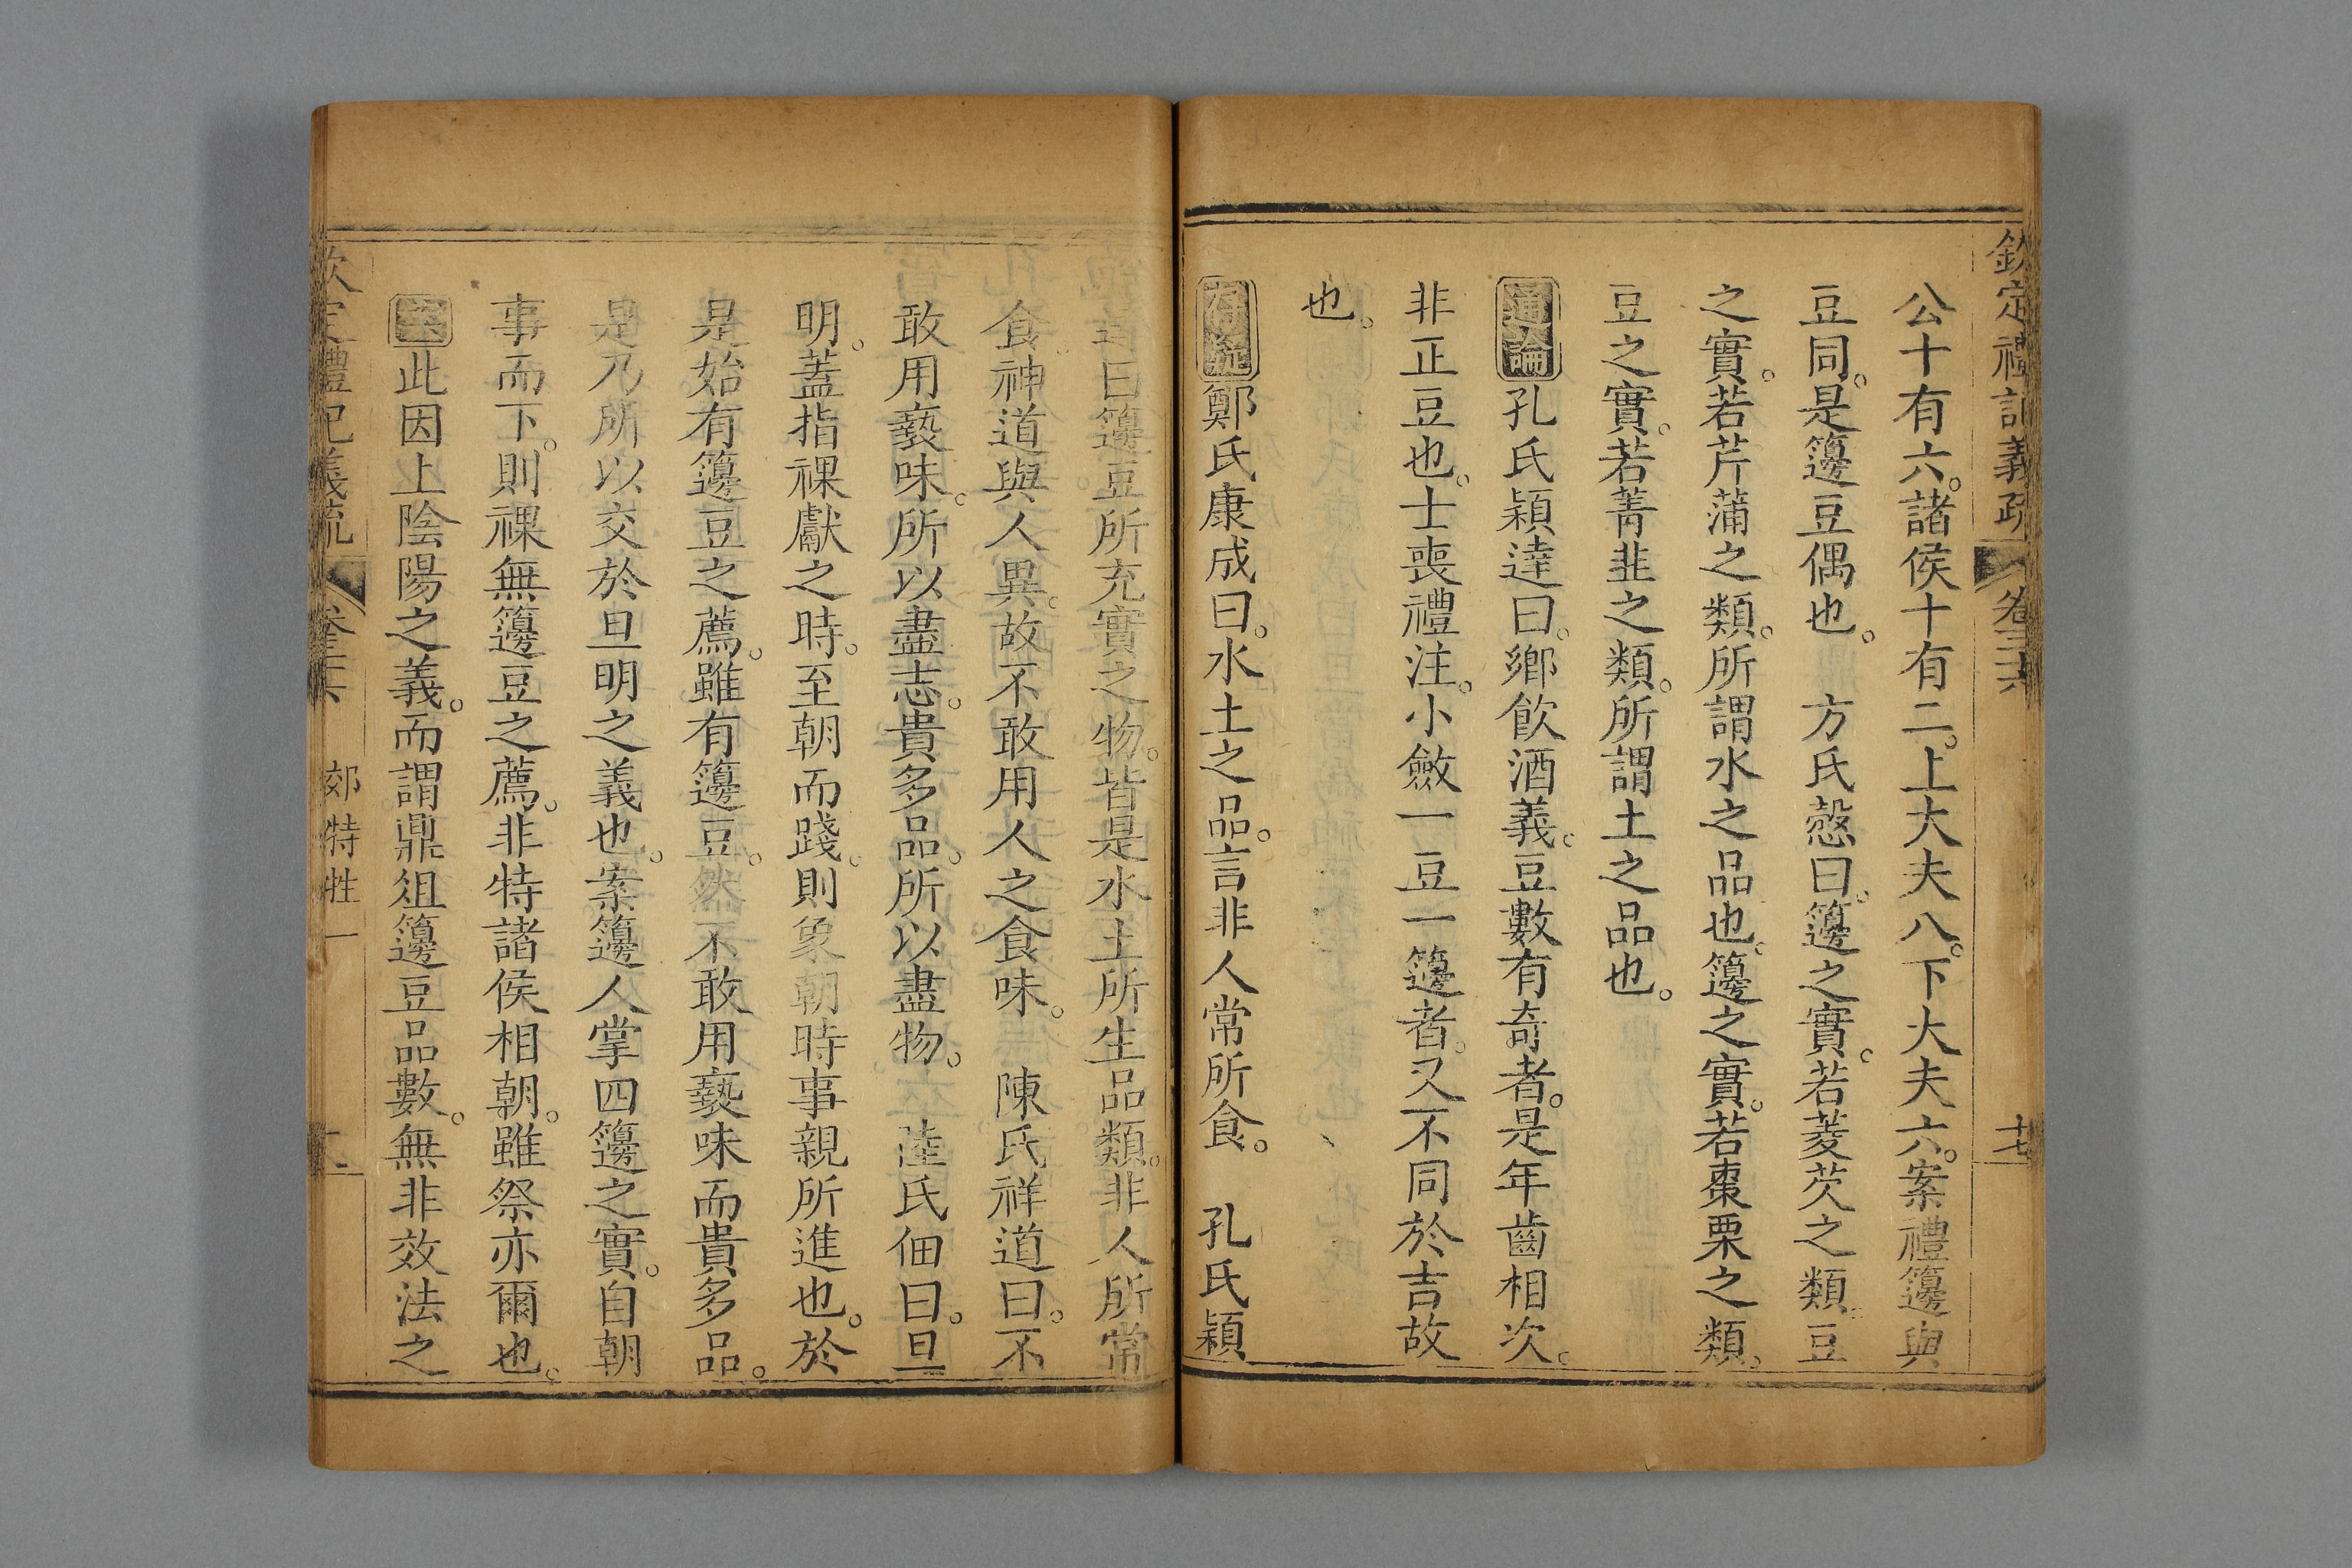 欽定禮記義疏 卷三十六 十七
公十有六。諸侯十有二。上大夫八。下大夫六。案禮籩與
豆同。是籩豆偶也。 方氏慤曰。籩之實。若菱芡之類。豆
之實。若芹蒲之類。所謂水之品也。籩之實。若棗栗之類。
豆之實。若菁韭之類。所謂土之品也。
通論孔氏穎達曰。鄉飲酒義。豆數有奇者。是年齒相次。
非正豆也。士喪禮注。小斂一豆一籩者。又不同於吉故
也。
存疑鄭氏康成曰。水土之品。言非人常所食。 孔氏穎
達曰籩豆所充實之物。皆是水土所生品類。非人所常
食。神道與人異。故不敢用人之食味。 陳氏祥道曰。不
敢用褻味。所以盡志。貴多品。所以盡物。 陸氏佃曰。旦
明。蓋指祼獻之時。至朝而踐。則象朝時事親所進也。於
是始有籩豆之薦。雖有籩豆。然不敢用褻味而貴多品。
是乃所以交於旦明之義也。案籩人掌四籩之實。自朝
事而下。則祼無籩豆之薦。非特諸侯相朝。雖祭亦爾也。
案此因上陰陽之義。而謂鼎俎籩豆品數。無非效法之
欽定禮記義疏 卷三十六 郊特牲一